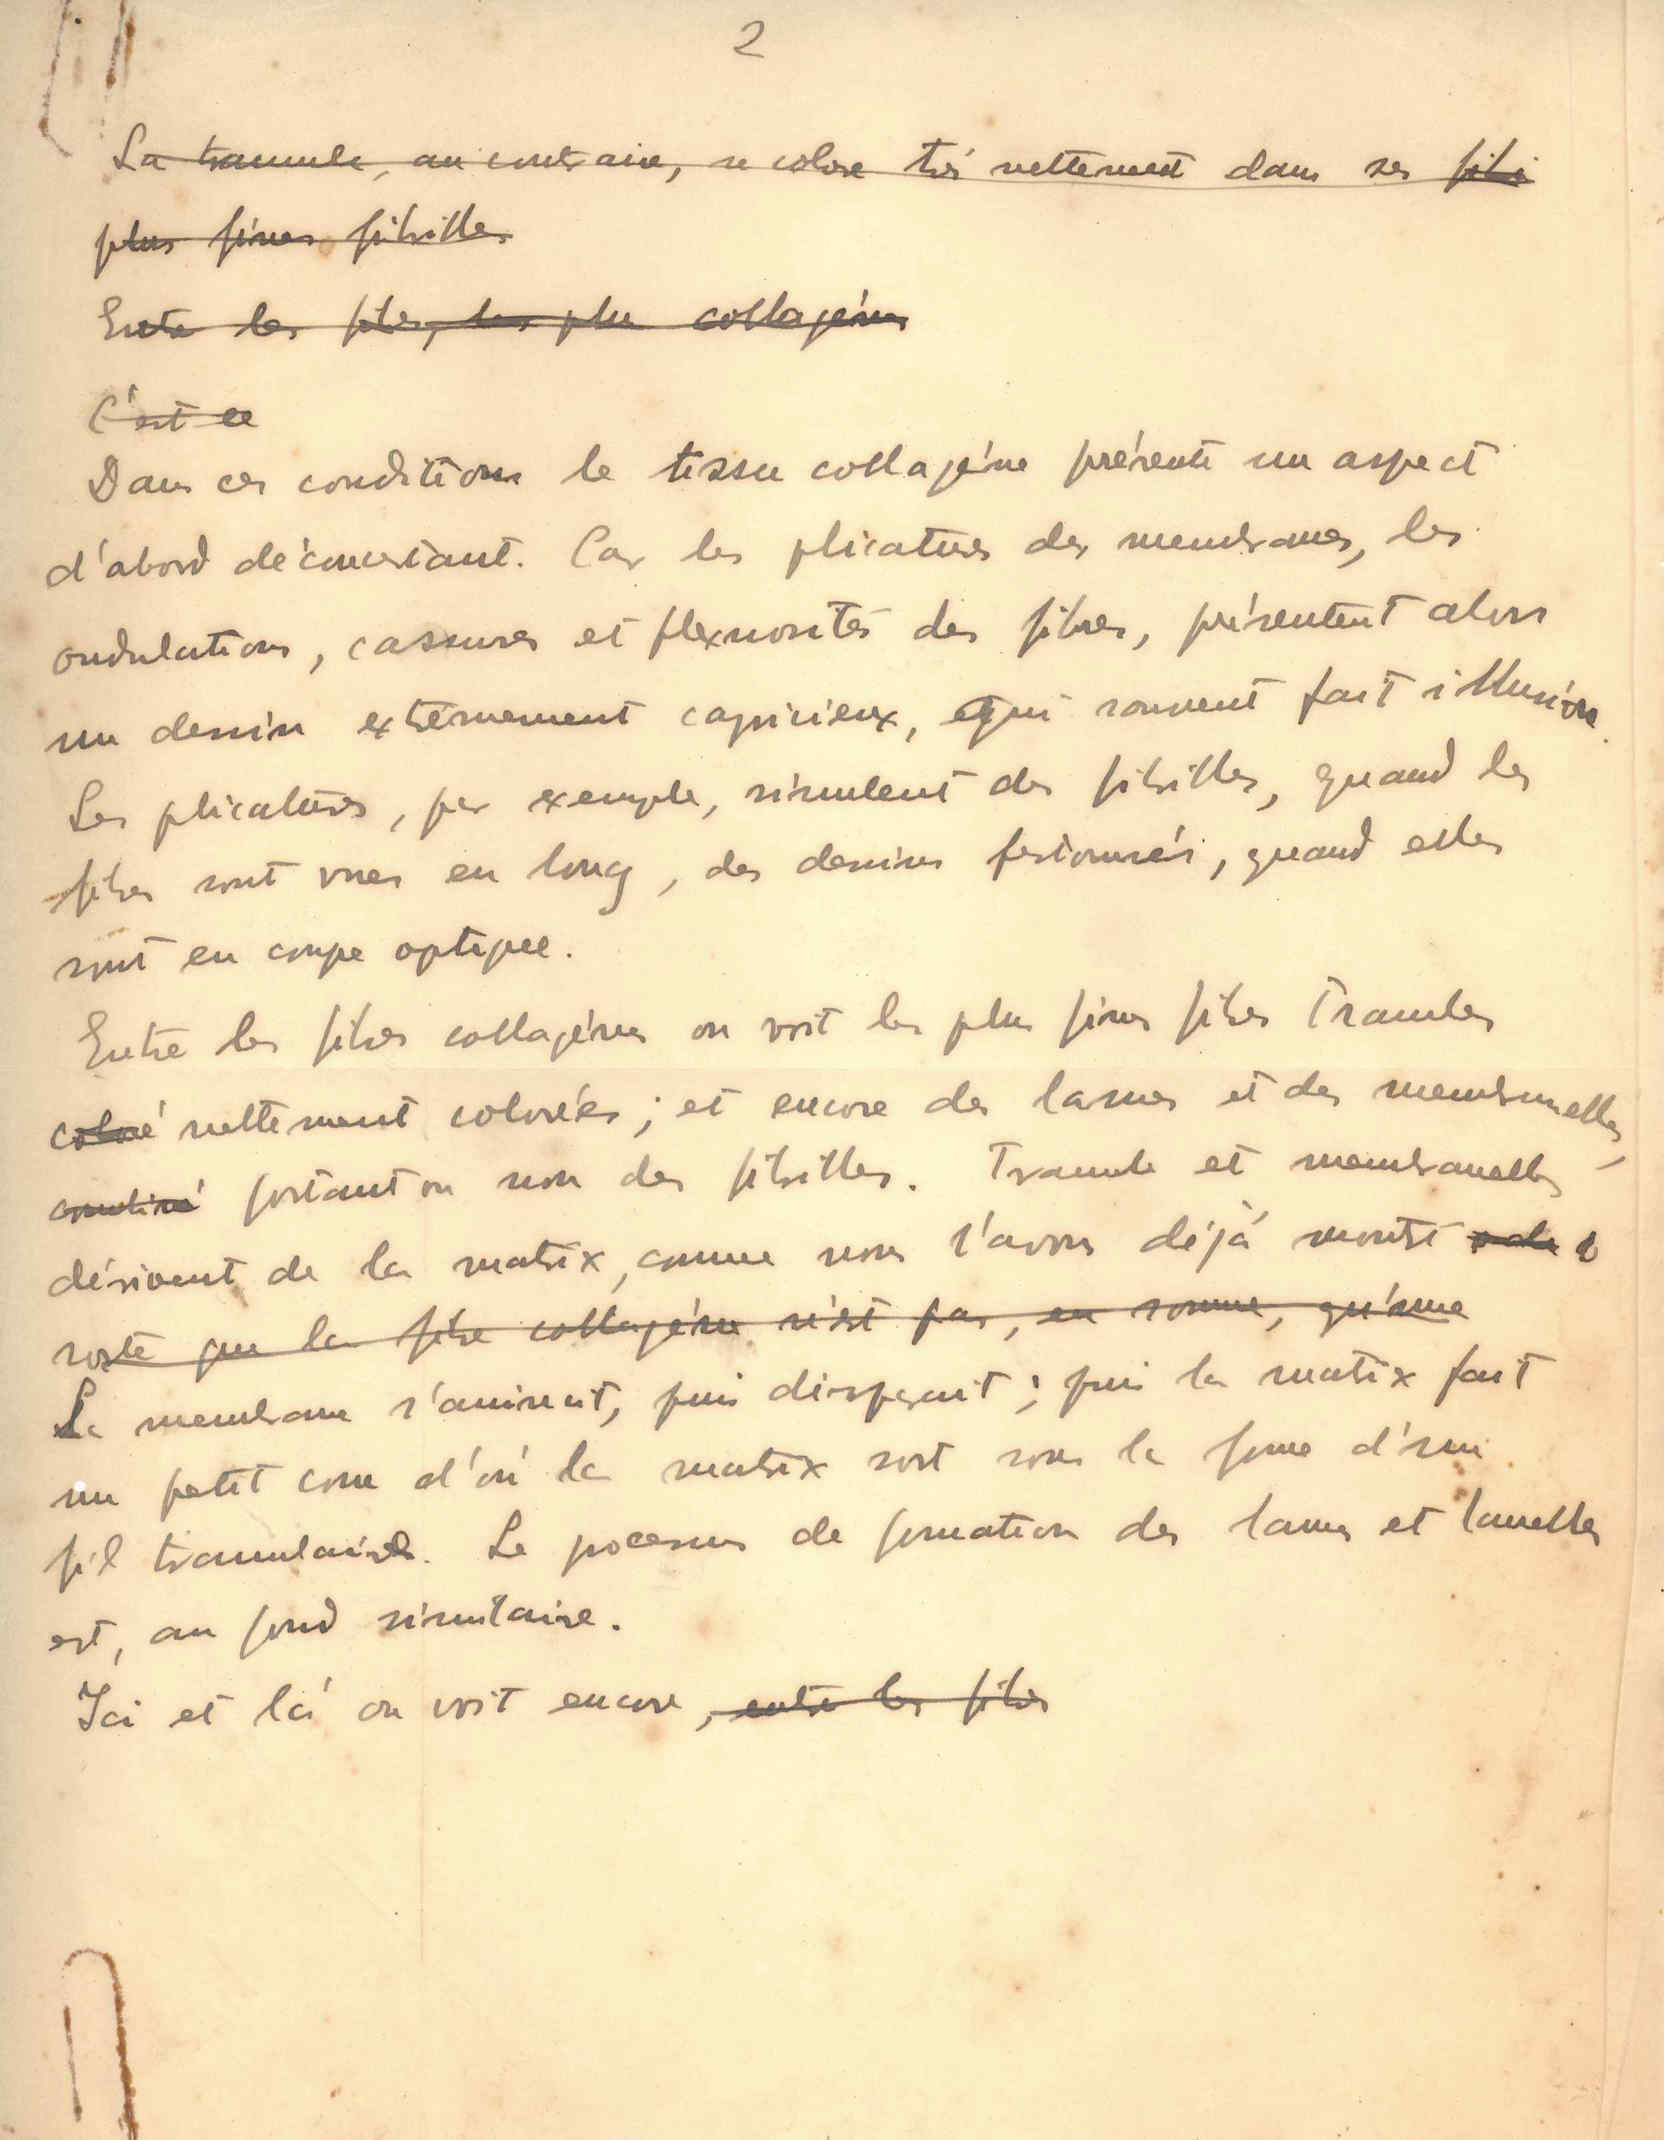 2
La tramule, au contraire, se colore très nettement dans ses fibr
plus fines fibrilles
Entre les fibres, les plus collagènes
C'est ce
Dans ces conditions le tissu collagène présente un aspect
d'abord déconcertant. Car les plicatures des membranes, les
ondulations, cassures et flexuosités des fibres, présentent alors
un dessin extrêmement capricieux, qui souvent fait illusion.
Les plicatures, par exemple, simulent des fibrilles, quand les
fibres sont vues en long, des dessins festonnés, quand elles
sont en coupe optique.
Entre les fibres collagènes on voit les plus fines fibres tramules
coloré nettement colorées; et encore des lames et des membranelles,
portant ou non des fibrilles. Tramule et membranelles
dérivent de la matrix, comme nous l'avons déjà montré
sorte que la fibre collagène n'est pas, en somme, qu'une
La membrane s'amincit, puis disparait; puis la matrix fait
un petit cone d'où la matrix sort sous la forme d'un
fil tramulaire. Le processus de formation des lames et lamelles
est, au fond similaire.
Ici et là on voit encore, entre les fibres